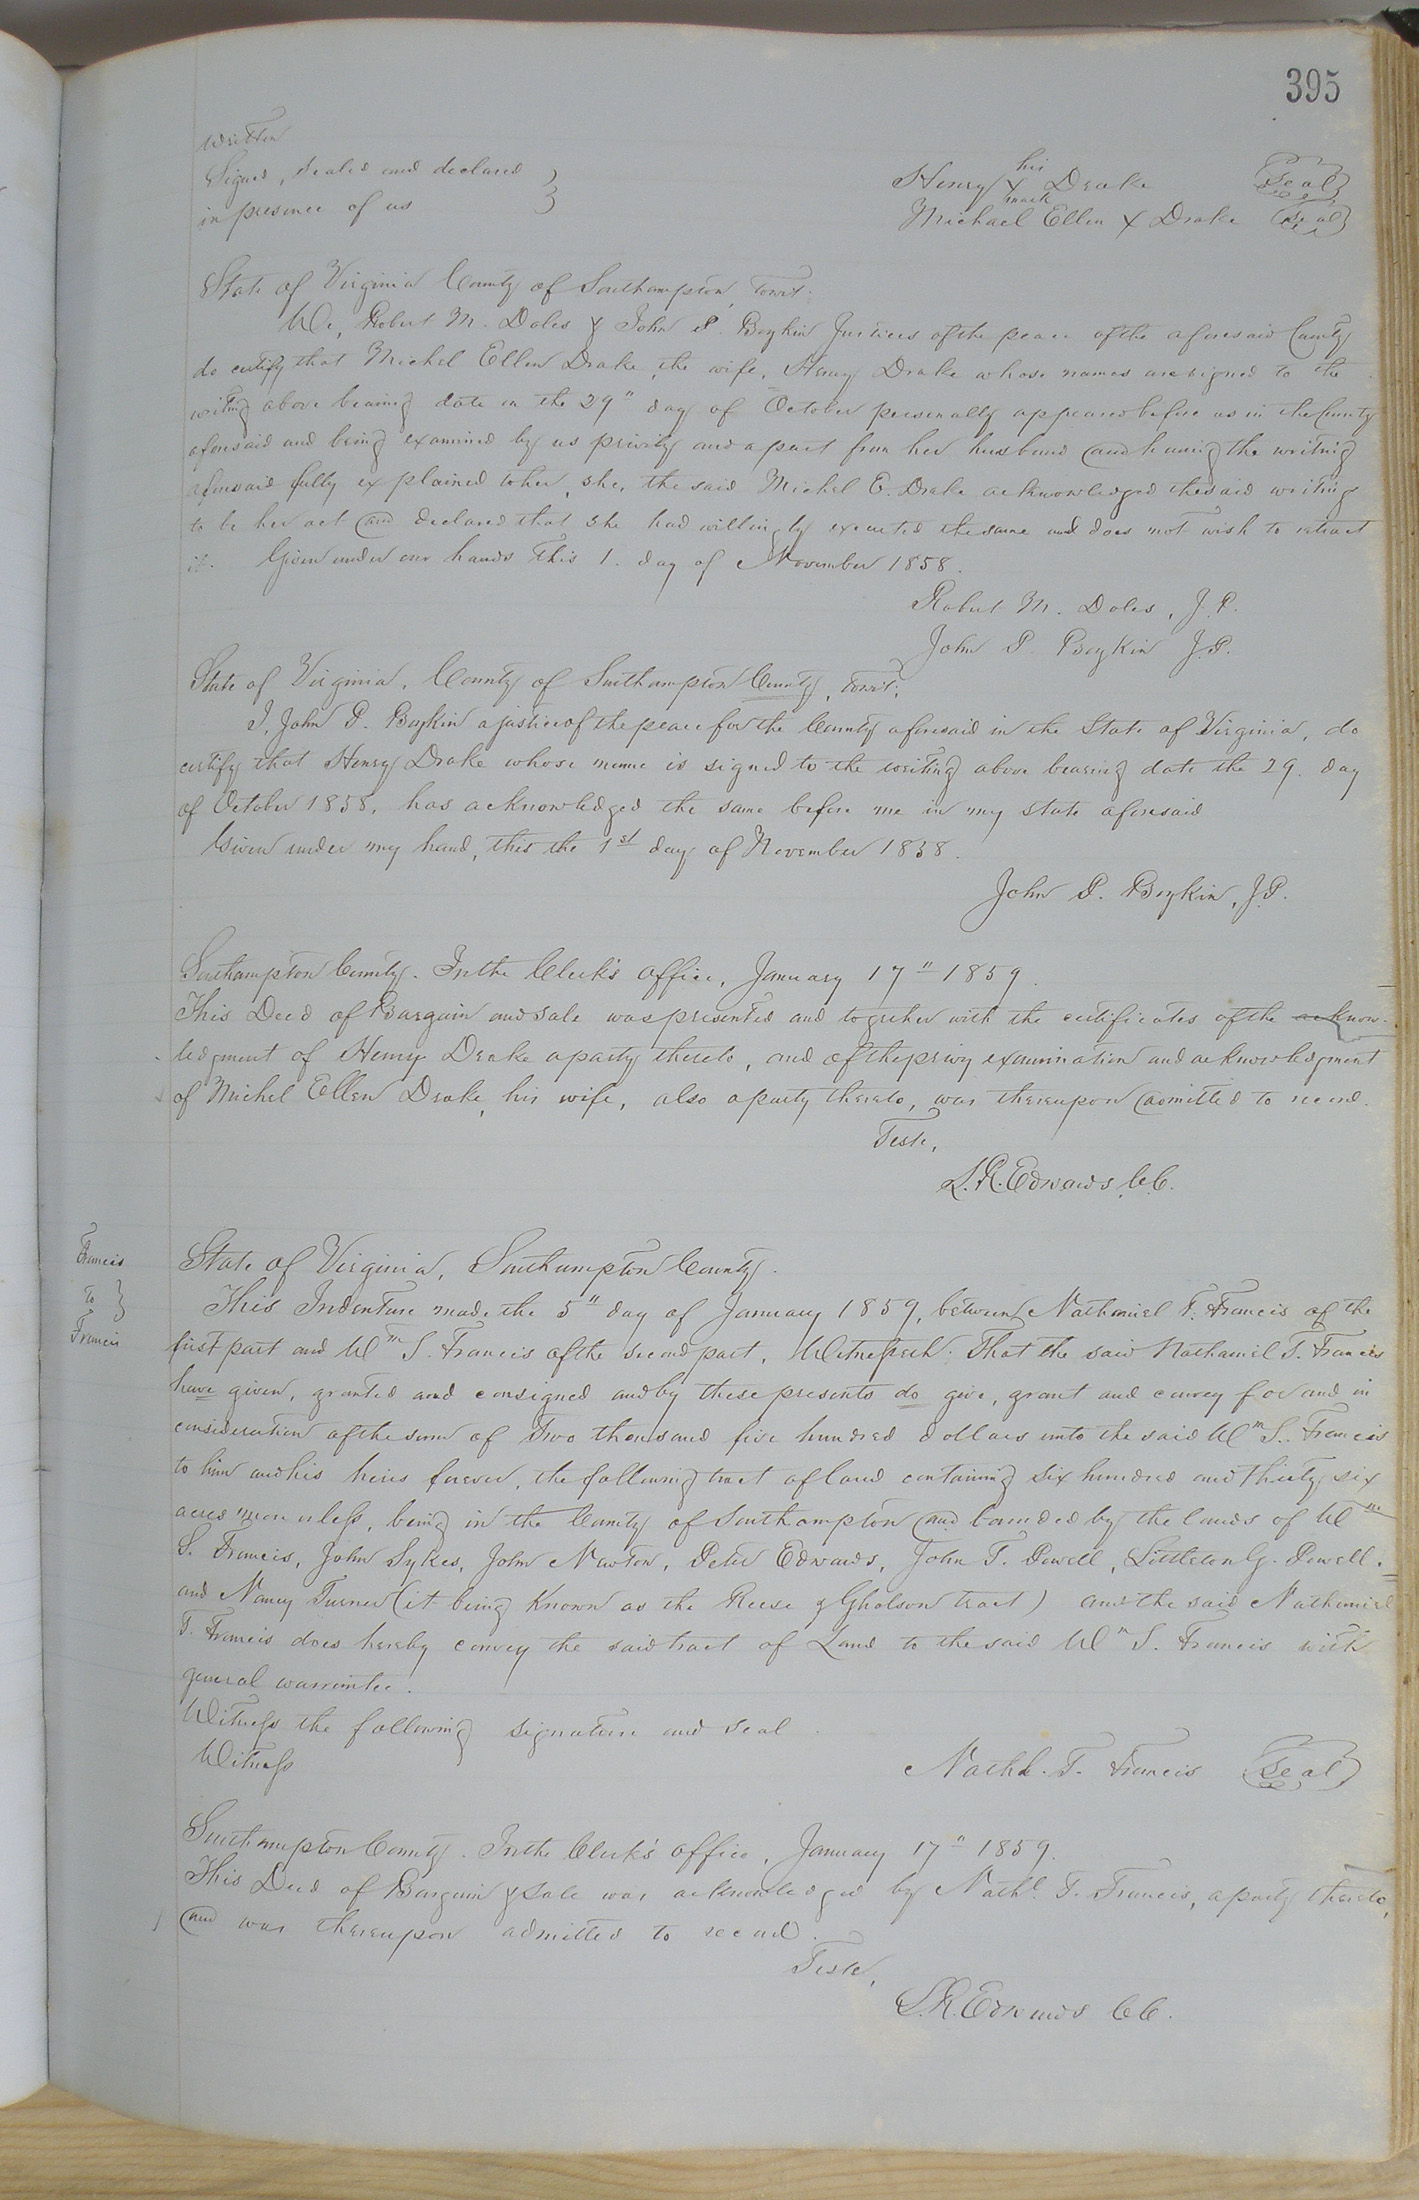 395
written
Signed, sealed and declared
in presence of us
his
Henry X Drake Seal
mark
Michael Ellen X Drake Seal
State of Virginia County of Southampton, towit:
We, Robert M. Doles & John P. Boykin Justices of the peace of the aforesaid County
do certify that Michel Ellen Drake, the wife, Henry Drake whose names are signed to the
writing above bearing date on the 29" day of October personally appeared before us in the County
aforesaid and being examined by us privily and apart from her husband and having the writing
aforesaid fully explained to her, she, the said Michel E. Drake acknowledged the said writing
to be her act and declared that she had willingly executed the same and does not wish to retract
it. Given under our hands this 1. day of November 1858.
Robert M. Doles, J.P.
John P. Boykin J.P.
State of Virginia, County of Southampton County, towit;
I, John P. Boykin a justice of the peace for the County aforesaid in the State of Virginia, do
certify that Henry Drake whose name is signed to the writing above bearing date the 29. day
of October 1858, has acknowledged the same before me in my state aforesaid
Given under my hand, this the 1st day of November 1858.
John P. Boykin, J.P.
Southampton County. In the Clerk's office, January 17" 1859.
This Deed of Bargain and sale was presented and together with the certificates of the acknow-
ledgment of Henry Drake a party thereto, and of the privy examination and acknowledgment
of Michel Ellen Drake, his wife, also a party thereto, was thereupon admitted to record.
Teste,
L.R. Edwards, C.C.
Francis
to
Francis
State of Virginia, Southampton County.
This Indenture made the 5" day of January 1859, between Nathaniel T. Francis of the
first part and Wm S. Francis of the second part, Witnesseth: That the said Nathaniel T. Francis
have given, granted and consigned and by these presents do give, grant and convey for and in
consideration of the sum of Two thousand five hundred dollars unto the said Wm S. Francis
to him and his heirs forever, the following tract of land containing Six hundred and thirty six
acres more or less, being in the County of Southampton and bounded by the lands of Wm
S. Francis, John Sykes, John Newton, Peter Edwards, John T. Powell, Littleton G. Powell.
and Nancy Turner (it being known as the Reese & Gholson tract) and the said Nathaniel
T. Francis does hereby convey the said tract of Land to the said Wm S. Francis with
general warrantee.
Witness the following signature and seal.
Witness
Nathl. T. Francis Seal
Southampton County. In the Clerk's office, January 17" 1859.
This Deed of Bargain & sale was acknowledged by Nathl. T. Francis, a party thereto,
and was thereupon admitted to record.
Teste,
L.R. Edwards CC.